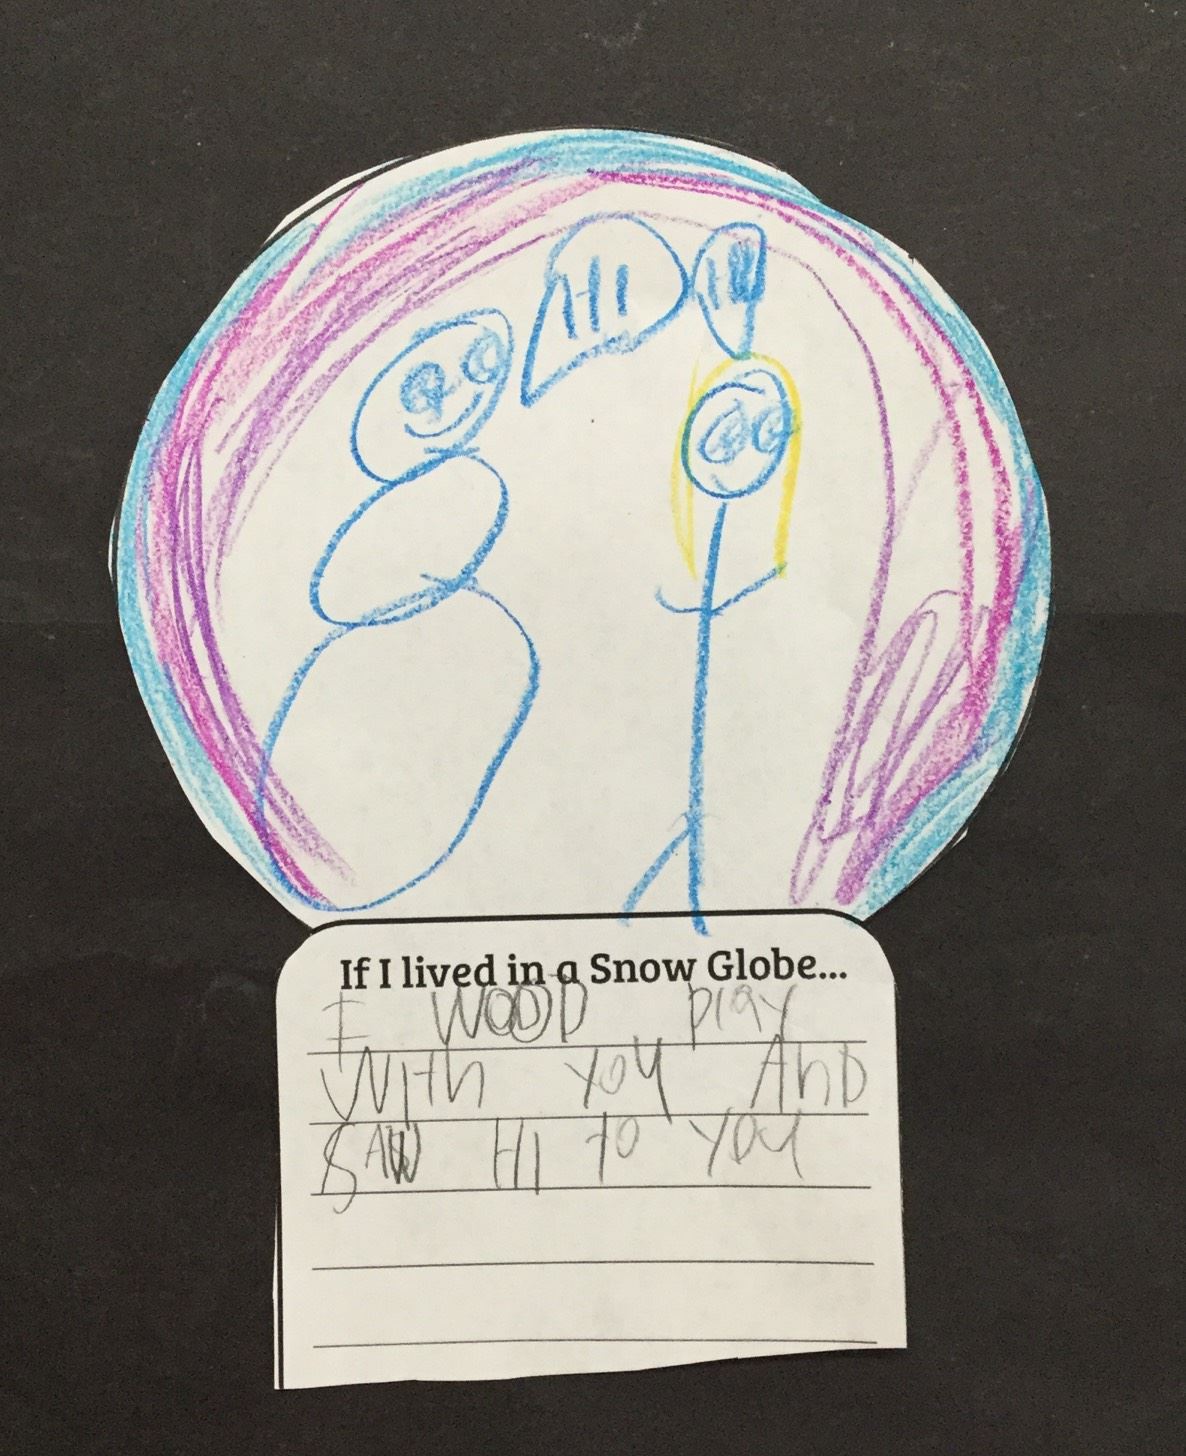 HI
HI
If I lived in a Snow Globe...
I WOOD play
With you And
SAW HI to you